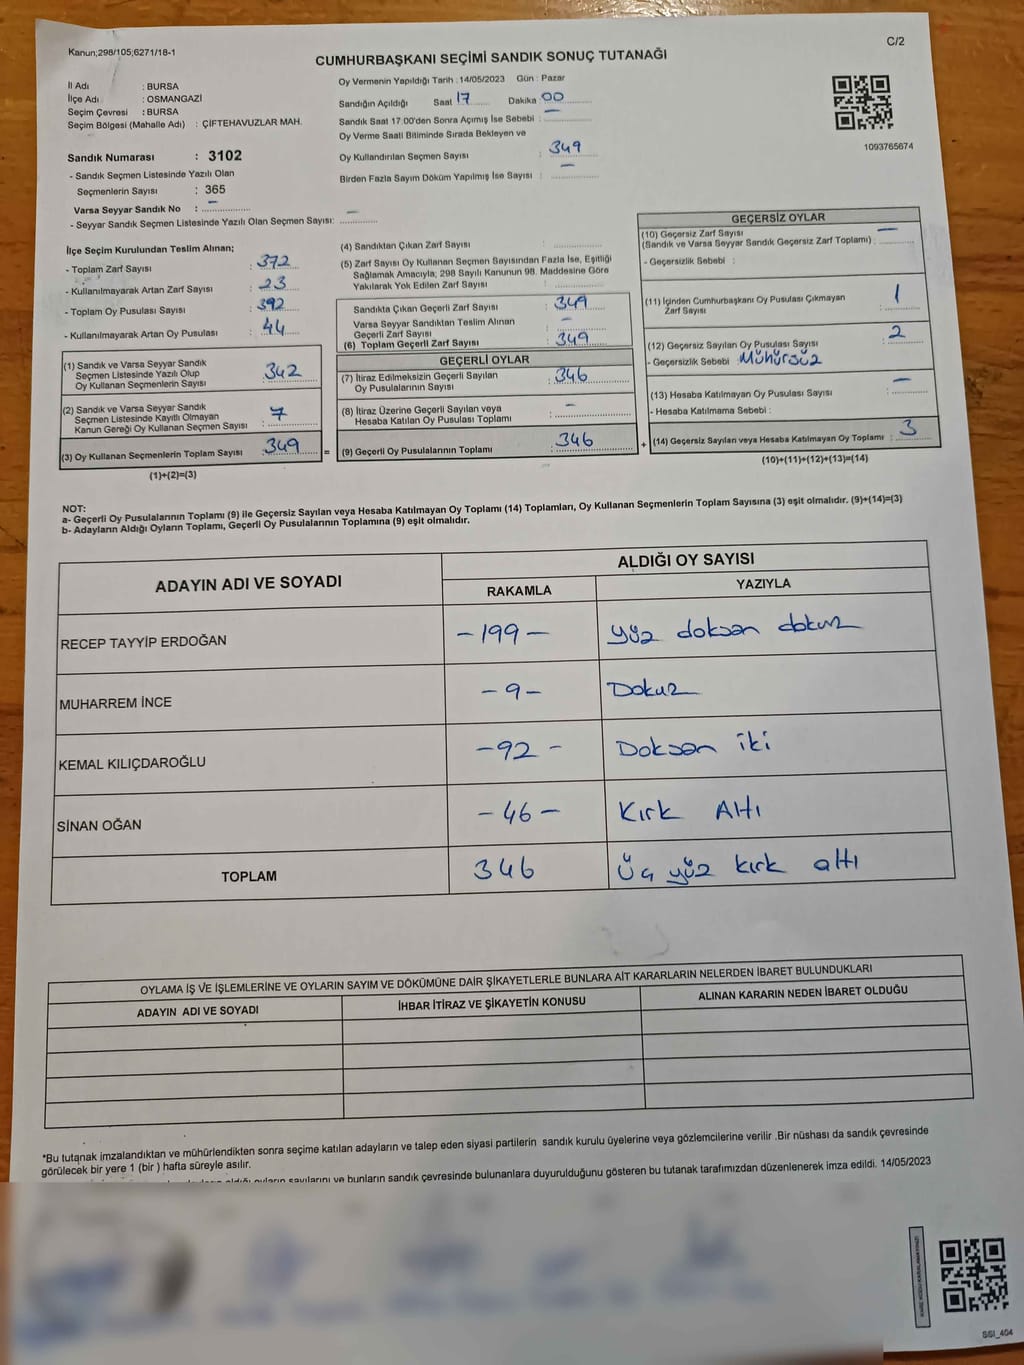 Kanun;298/105;6271/18-1
C/2
CUMHURBAŞKANI SEÇİMİ SANDIK SONUÇ TUTANAĞI
İl Adı : BURSA
İlçe Adı : OSMANGAZİ
Seçim Çevresi : BURSA
Seçim Bölgesi (Mahalle Adı) : ÇİFTEHAVUZLAR MAH.
Sandık Numarası : 3102
- Sandık Seçmen Listesinde Yazılı Olan
Seçmenlerin Sayısı : 365
Varsa Seyyar Sandık No : –
- Seyyar Sandık Seçmen Listesinde Yazılı Olan Seçmen Sayısı: –
Oy Vermenin Yapıldığı Tarih : 14/05/2023 Gün : Pazar
Sandığın Açıldığı Saat 17 Dakika 00
Sandık Saat 17.00'den Sonra Açımış İse Sebebi : –
Oy Verme Saati Bitiminde Sırada Bekleyen ve
Oy Kullandırılan Seçmen Sayısı : 349
Birden Fazla Sayım Döküm Yapılmış İse Sayısı : –
1093765674
İlçe Seçim Kurulundan Teslim Alınan;
- Toplam Zarf Sayısı : 372
- Kullanılmayarak Artan Zarf Sayısı : 23
- Toplam Oy Pusulası Sayısı : 392
- Kullanılmayarak Artan Oy Pusulası : 44
(1) Sandık ve Varsa Seyyar Sandık
Seçmen Listesinde Yazılı Olup
Oy Kullanan Seçmenlerin Sayısı : 342
(2) Sandık ve Varsa Seyyar Sandık
Seçmen Listesinde Kayıtlı Olmayan
Kanun Gereği Oy Kullanan Seçmen Sayısı : 7
(3) Oy Kullanan Seçmenlerin Toplam Sayısı : 349
(1)+(2)=(3)
=
(4) Sandıktan Çıkan Zarf Sayısı :
(5) Zarf Sayısı Oy Kullanan Seçmen Sayısından Fazla İse, Eşitliği
Sağlamak Amacıyla; 298 Sayılı Kanunun 98. Maddesine Göre
Yakılarak Yok Edilen Zarf Sayısı :
Sandıkta Çıkan Geçerli Zarf Sayısı : 349
Varsa Seyyar Sandıktan Teslim Alınan
Geçerli Zarf Sayısı : –
(6) Toplam Geçerli Zarf Sayısı : 349
GEÇERLİ OYLAR
(7) İtiraz Edilmeksizin Geçerli Sayılan
Oy Pusulalarının Sayısı : 346
(8) İtiraz Üzerine Geçerli Sayılan veya
Hesaba Katılan Oy Pusulası Toplamı : –
(9) Geçerli Oy Pusulalarının Toplamı : 346
+
GEÇERSİZ OYLAR
(10) Geçersiz Zarf Sayısı
(Sandık ve Varsa Seyyar Sandık Geçersiz Zarf Toplamı) : –
- Geçersizlik Sebebi :
(11) İçinden Cumhurbaşkanı Oy Pusulası Çıkmayan
Zarf Sayısı : 1
(12) Geçersiz Sayılan Oy Pusulası Sayısı : 2
- Geçersizlik Sebebi : Mühürsüz
(13) Hesaba Katılmayan Oy Pusulası Sayısı : –
- Hesaba Katılmama Sebebi :
(14) Geçersiz Sayılan veya Hesaba Katılmayan Oy Toplamı : 3
(10)+(11)+(12)+(13)=(14)
NOT:
a- Geçerli Oy Pusulalarının Toplamı (9) ile Geçersiz Sayılan veya Hesaba Katılmayan Oy Toplamı (14) Toplamları, Oy Kullanan Seçmenlerin Toplam Sayısına (3) eşit olmalıdır. (9)+(14)=(3)
b- Adayların Aldığı Oyların Toplamı, Geçerli Oy Pusulalarının Toplamına (9) eşit olmalıdır.
ADAYIN ADI VE SOYADI
ALDIĞI OY SAYISI
RAKAMLA YAZIYLA
RECEP TAYYİP ERDOĞAN – 199 – yüz doksan dokuz
MUHARREM İNCE – 9 – Dokuz
KEMAL KILIÇDAROĞLU – 92 – Doksan iki
SİNAN OĞAN – 46 – Kırk Altı
TOPLAM 346 Üç yüz kırk altı
OYLAMA İŞ VE İŞLEMLERİNE VE OYLARIN SAYIM VE DÖKÜMÜNE DAİR ŞİKAYETLERLE BUNLARA AİT KARARLARIN NELERDEN İBARET BULUNDUKLARI
ADAYIN ADI VE SOYADI İHBAR İTİRAZ VE ŞİKAYETİN KONUSU ALINAN KARARIN NEDEN İBARET OLDUĞU
*Bu tutanak imzalandıktan ve mühürlendikten sonra seçime katılan adayların ve talep eden siyasi partilerin sandık kurulu üyelerine veya gözlemcilerine verilir .Bir nüshası da sandık çevresinde
görülecek bir yere 1 (bir ) hafta süreyle asılır.
oyların sayılarını ve bunların sandık çevresinde bulunanlara duyurulduğunu gösteren bu tutanak tarafımızdan düzenlenerek imza edildi. 14/05/2023
SSI_404